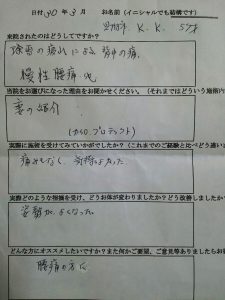 日付 30年3月 お名前(イニシャルでも結構です)
K.K. 57才
来院されたのはどうしてですか?
除雪の疲れによる 背中の痛み
慢性腰痛
当院をお選びになった理由をお聞かせください。(それまではどういう施術
妻の紹介
実際に施術を受けてみていかがでしたか?(これまでのご経験と比べどう違い
痛みもなく、気持よかった
実際どのような相違を受け、どうお体が変わりましたか?どう改善しましたか
姿勢がよくなった
どんな方にオススメしたいですか?また何かご要望、ご意見等ありましたらお
腰痛の方に